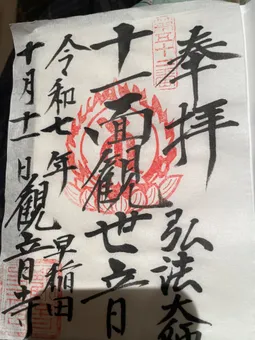 奉拝
弘法大師
十一面観世音
令和七年
十月十一日
早稲田
観音寺